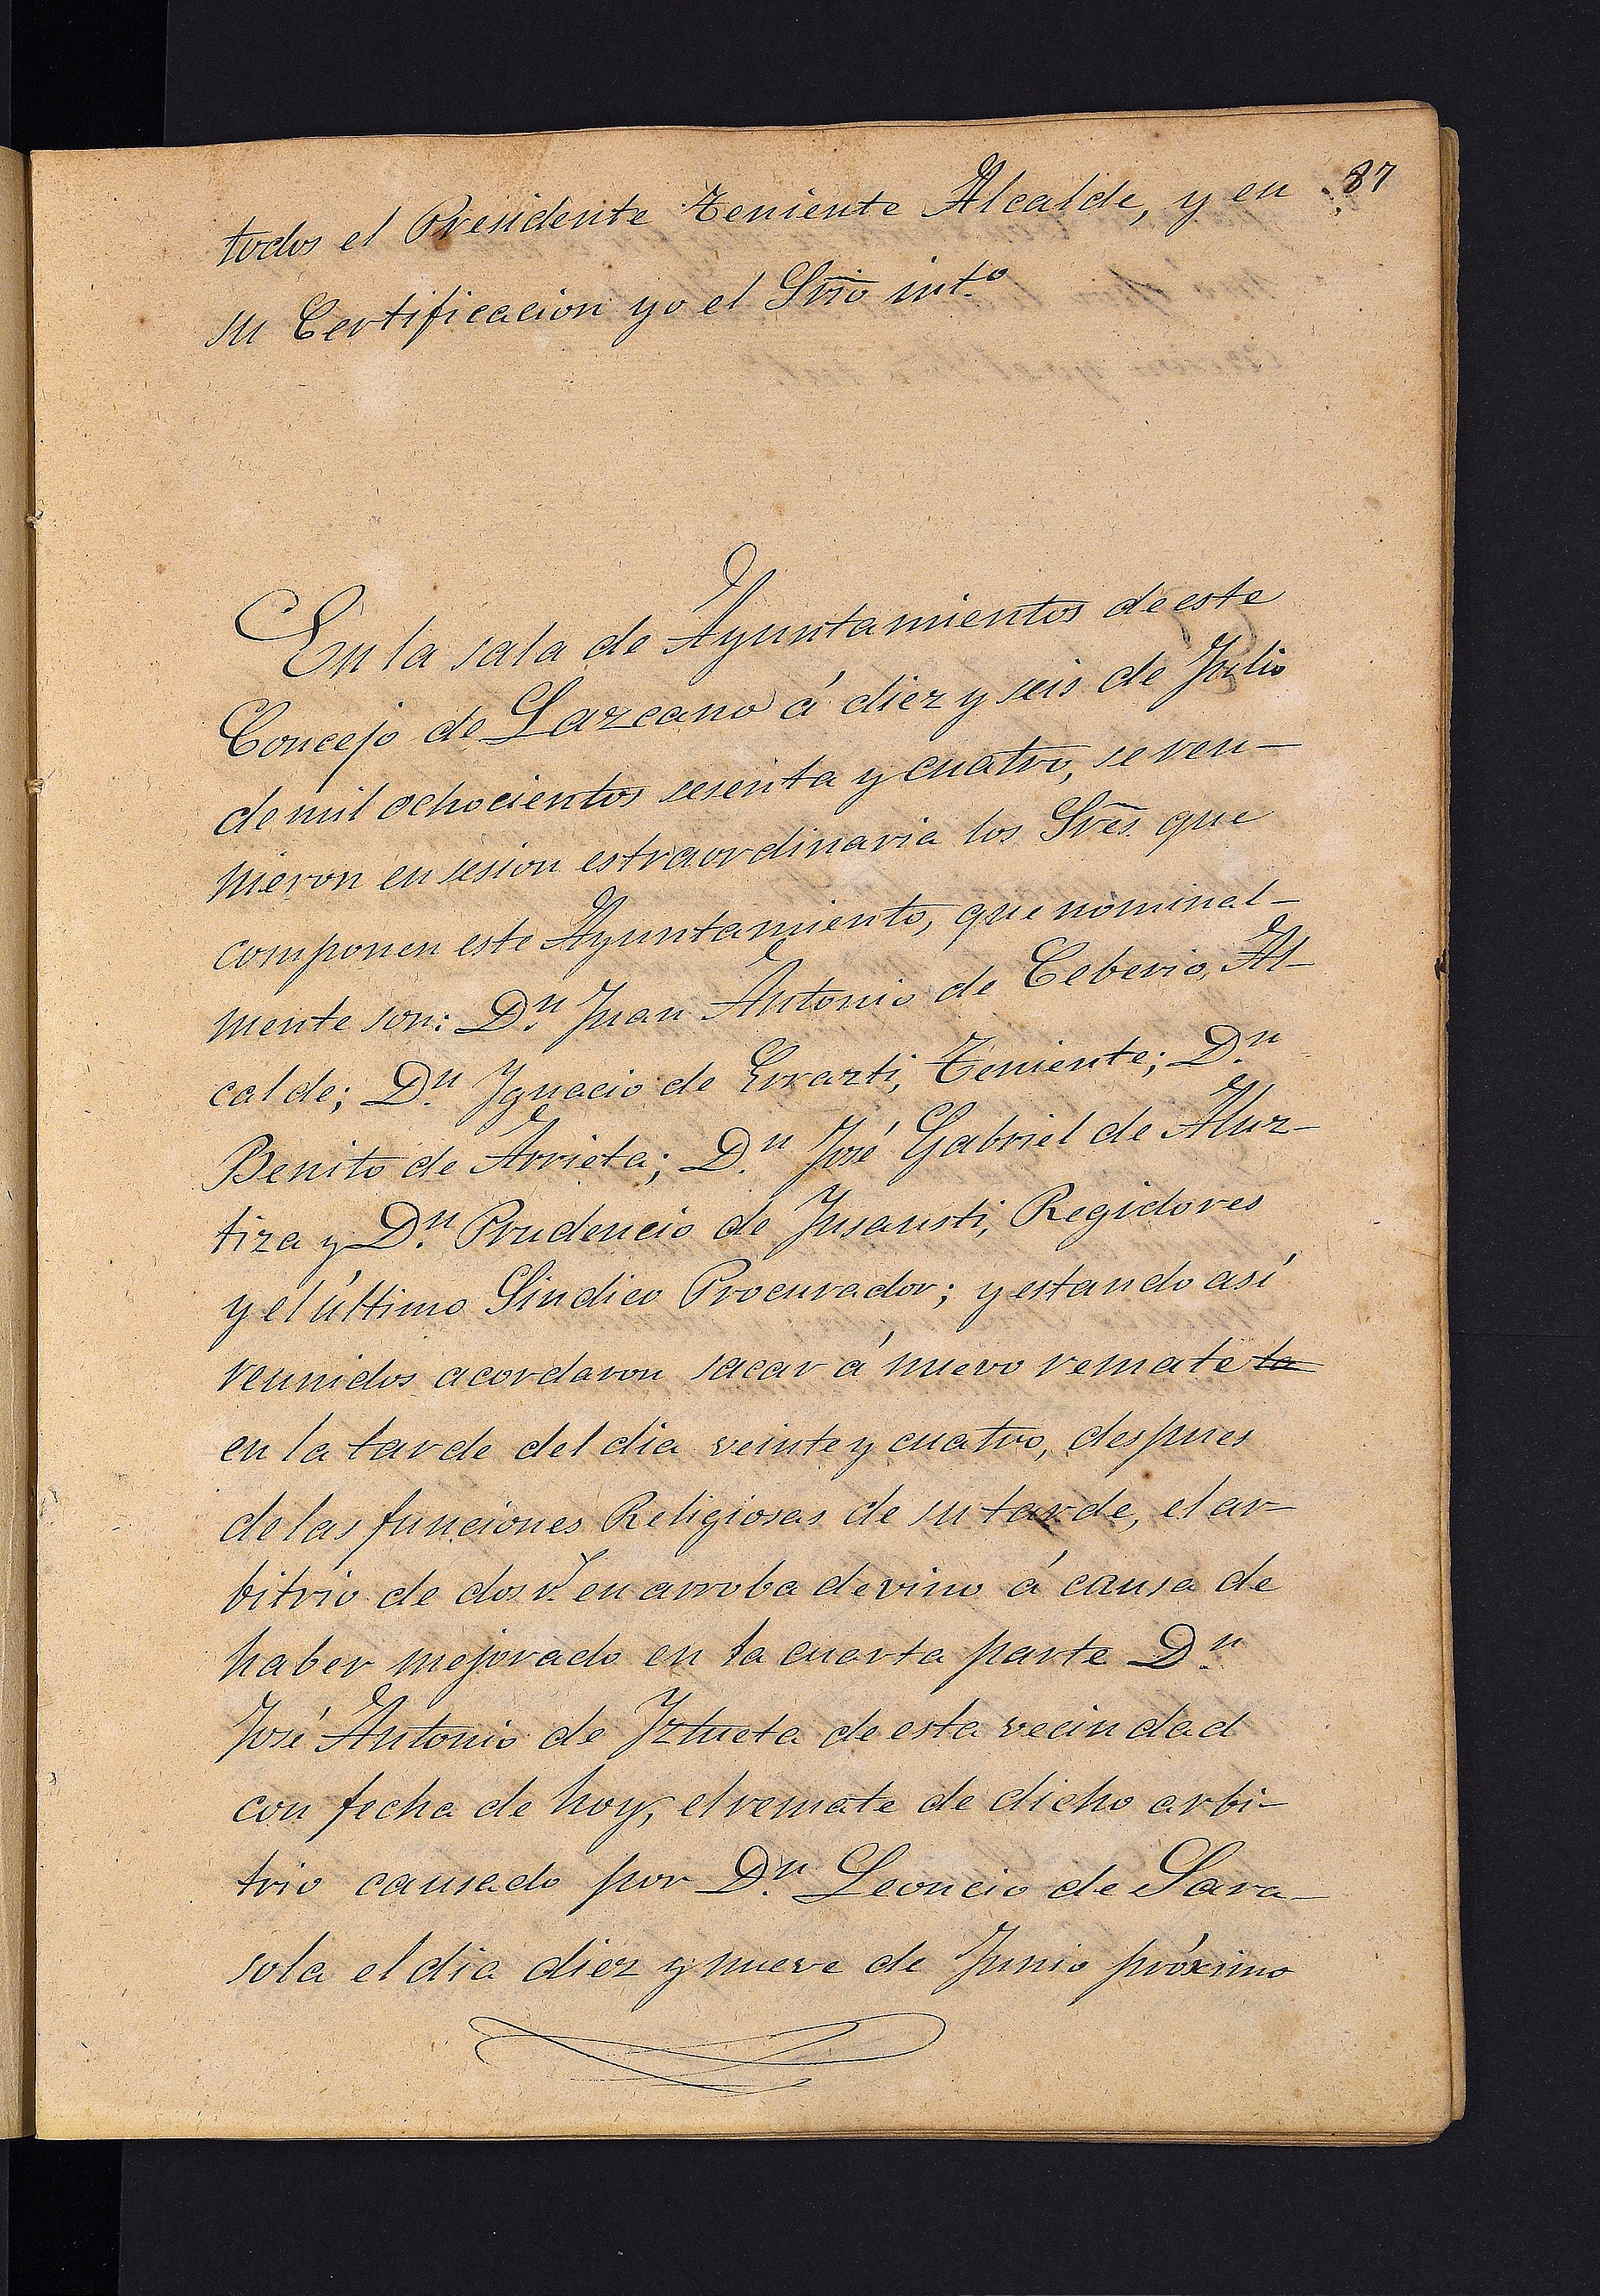 87
todos el Presidente Teniente Alcalde, y en
su Certificacion yo el Srio int.o
En la sala de Ayuntamientos de este
Concejo de Lazcano á diez y seis de Julio
de mil ochocientos sesenta y cuatro, se reu-
nieron en sesion estraordinaria los Sres. que
componen este Ayuntamiento, que nominal-
mente son: D.n Juan Antonio de Ceberio, Al-
calde; D.n Ygnacio de Errazti, Teniente; D.n
Benito de Arrieta; D.n José Gabriel de Aluz-
tiza y D.n Prudencio de Ynsausti, Regidores
y el último Sindico Procurador; y estando así
reunidos acordaron sacar á nuevo remate la
en la tarde del dia veinte y cuatro, despues
de las funciones Religiosas de su tarde, el ar-
bitrio de dos r.s en arroba de vino á causa de
haber mejorado en la cuarta parte D.n
José Antonio de Yztueta de esta vecindad
con fecha de hoy, el remate de dicho arbi-
trio causado por D.n Leoncio de Sara-
sola el dia diez y nueve de Junio próximo